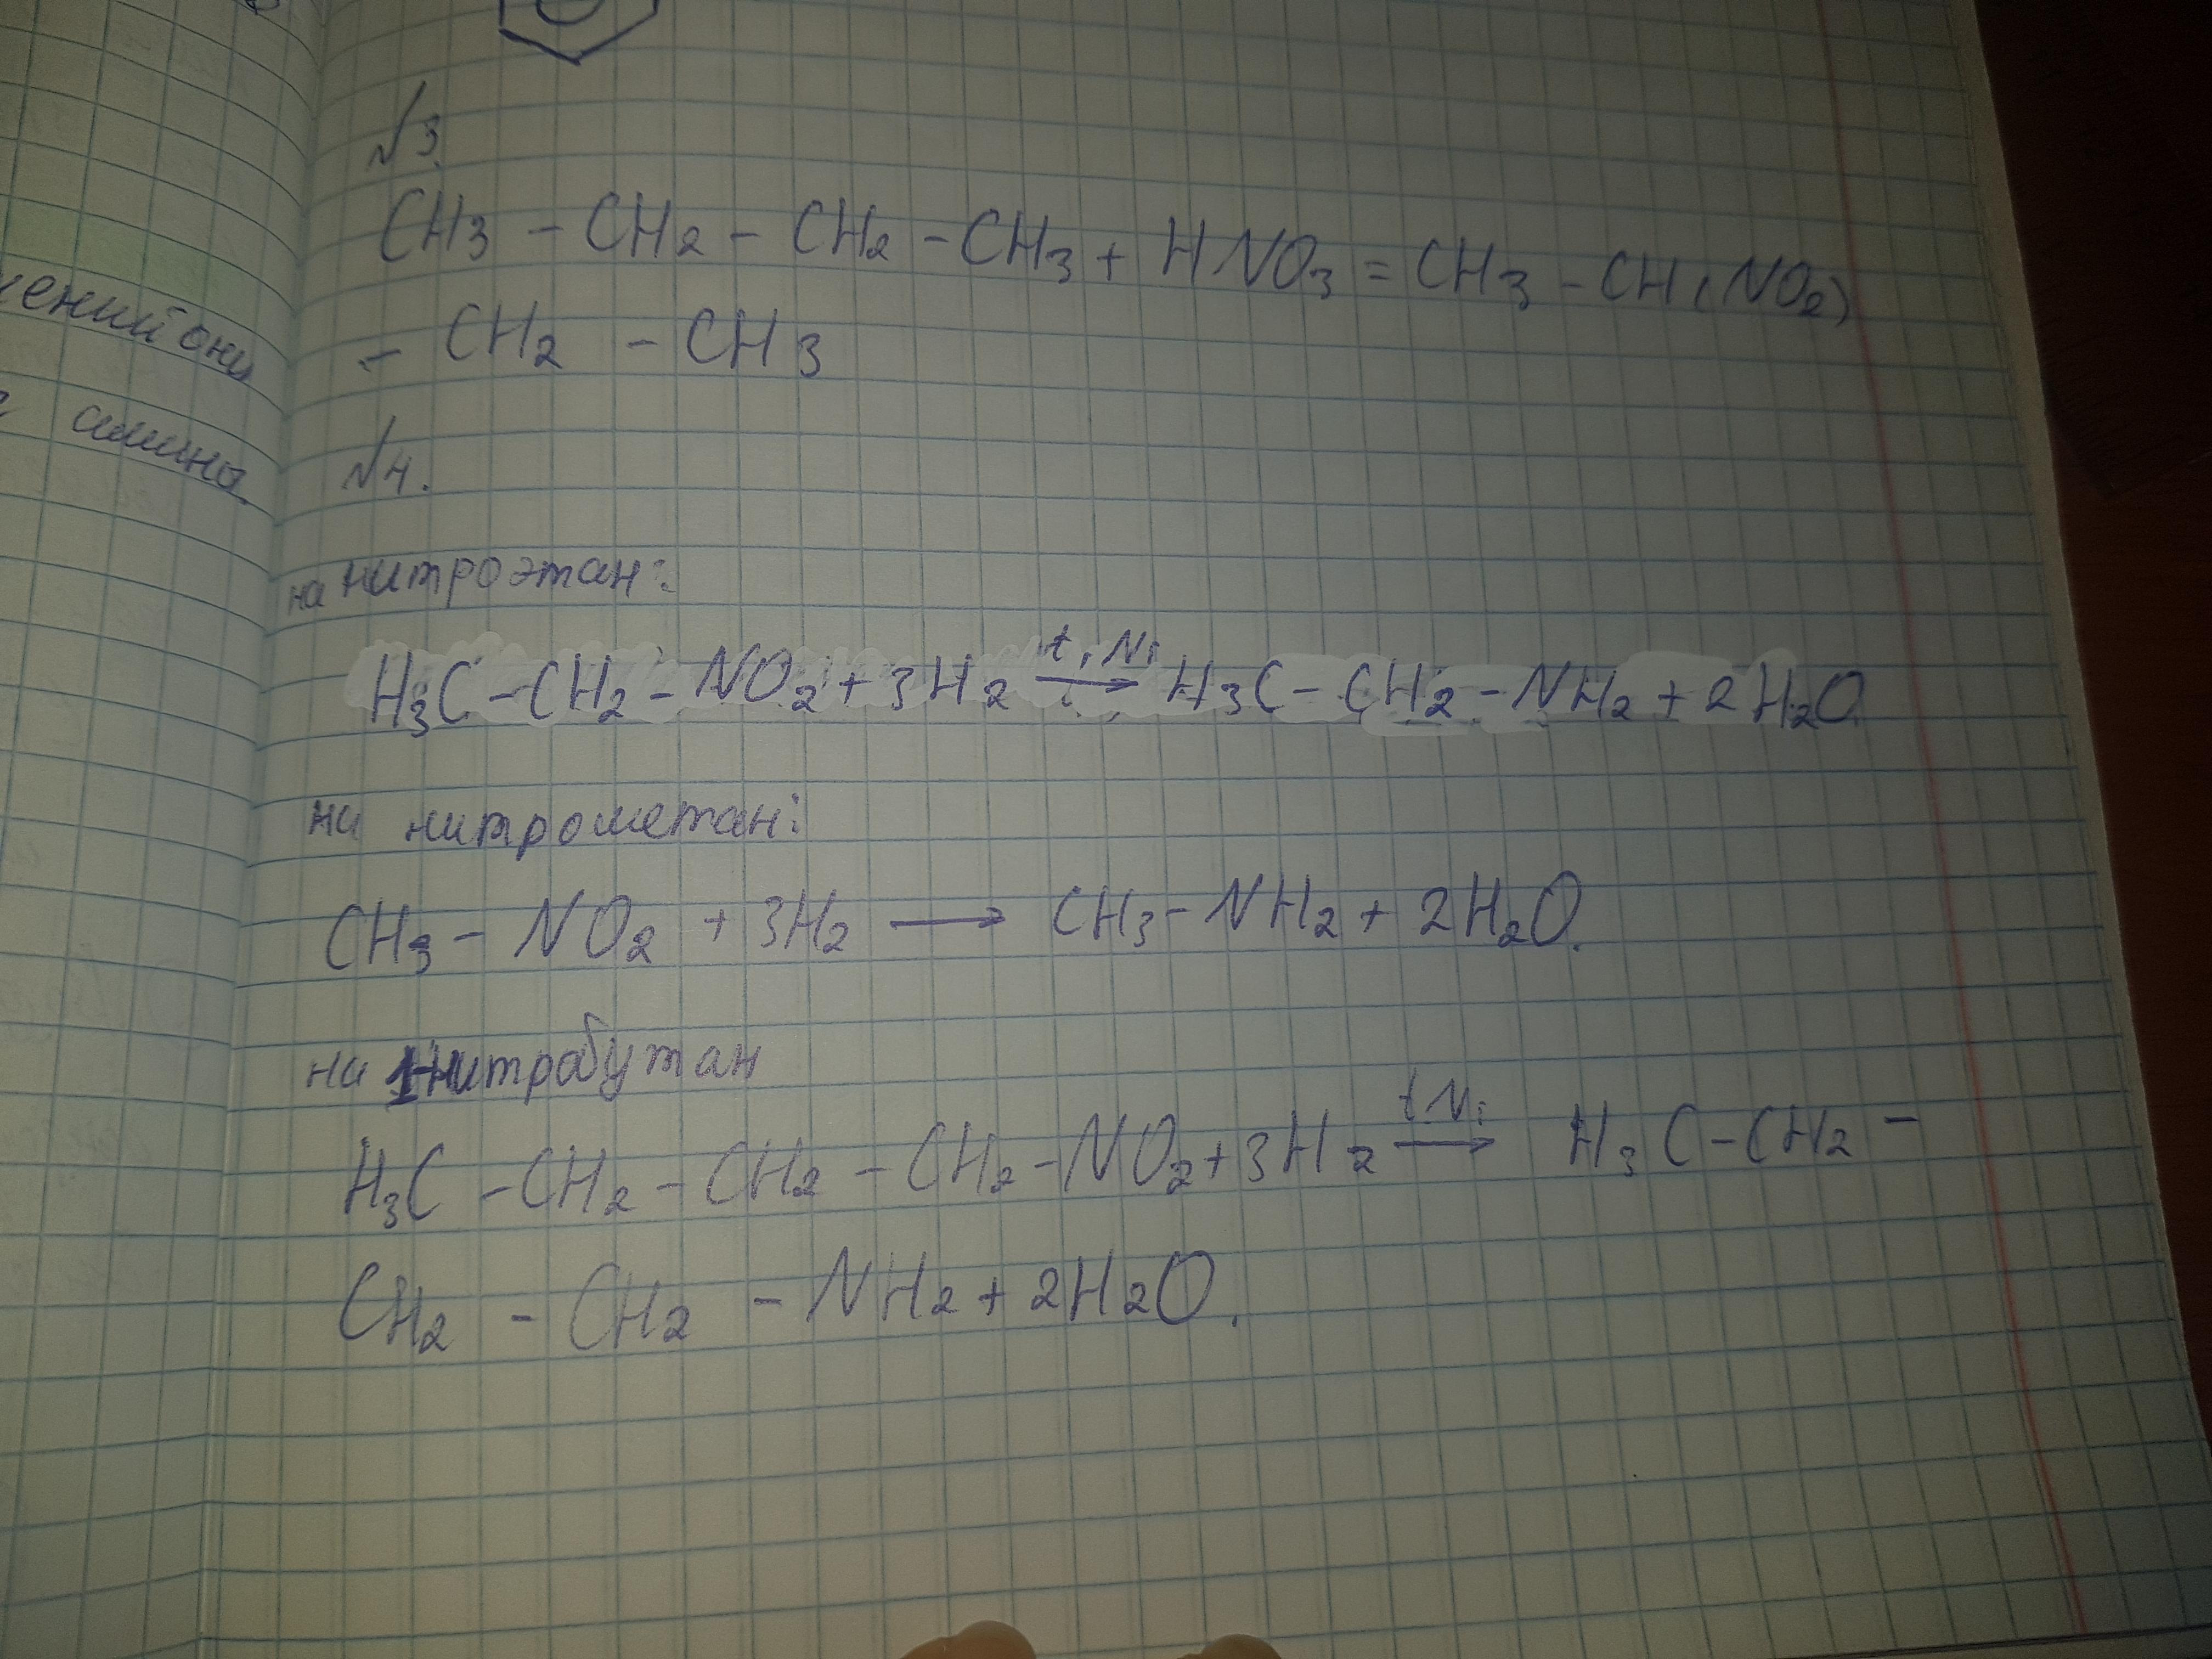 №3.
CH3 - CH2 - CH2 - CH3 + HNO3 = CH3 - CH(NO2)
- CH2 - CH3
амина
№4.
на нитроэтан:
t, Ni
H3C - CH2 - NO2 + 3H2 → H3C - CH2 - NH2 + 2H2O
на нитрометан:
CH3 - NO2 + 3H2 → CH3 - NH2 + 2H2O.
на 1-нитрабутан
t Ni
H3C - CH2 - CH2 - CH2 - NO2 + 3H2 → H3C - CH2 -
CH2 - CH2 - NH2 + 2H2O.